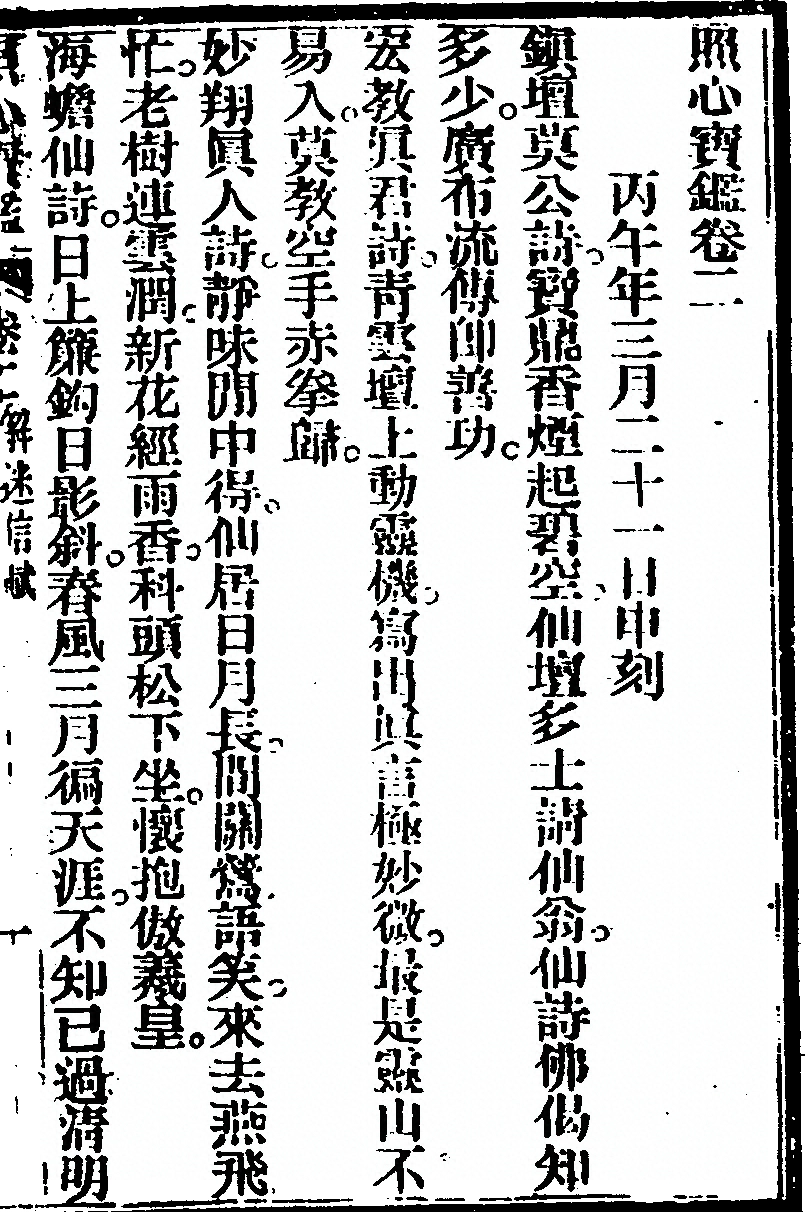 照心寶鑑卷二
丙午年三月二十一日申刻
鎮壇莫公詩。寶鼎香煙起碧空。仙壇多士請仙翁。仙詩佛偈知
多少。廣布流傳卽善功。
宏教真君詩。靑雲壇上動靈機。寫出眞言極妙微。最是靈山不
易入。莫教空手赤拳歸。
妙翔眞人詩。靜味閒中得。仙居日月長。間關鶯語笑。來去燕飛
忙。老樹連雲潤。新花經雨香。科頭松下坐。懷抱傲羲皇。
海蟾仙詩。日上簾鈎日影斜。春風三月徧天涯。不知已過淸明
解迷信 十一